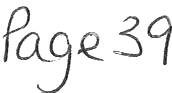 Page 39